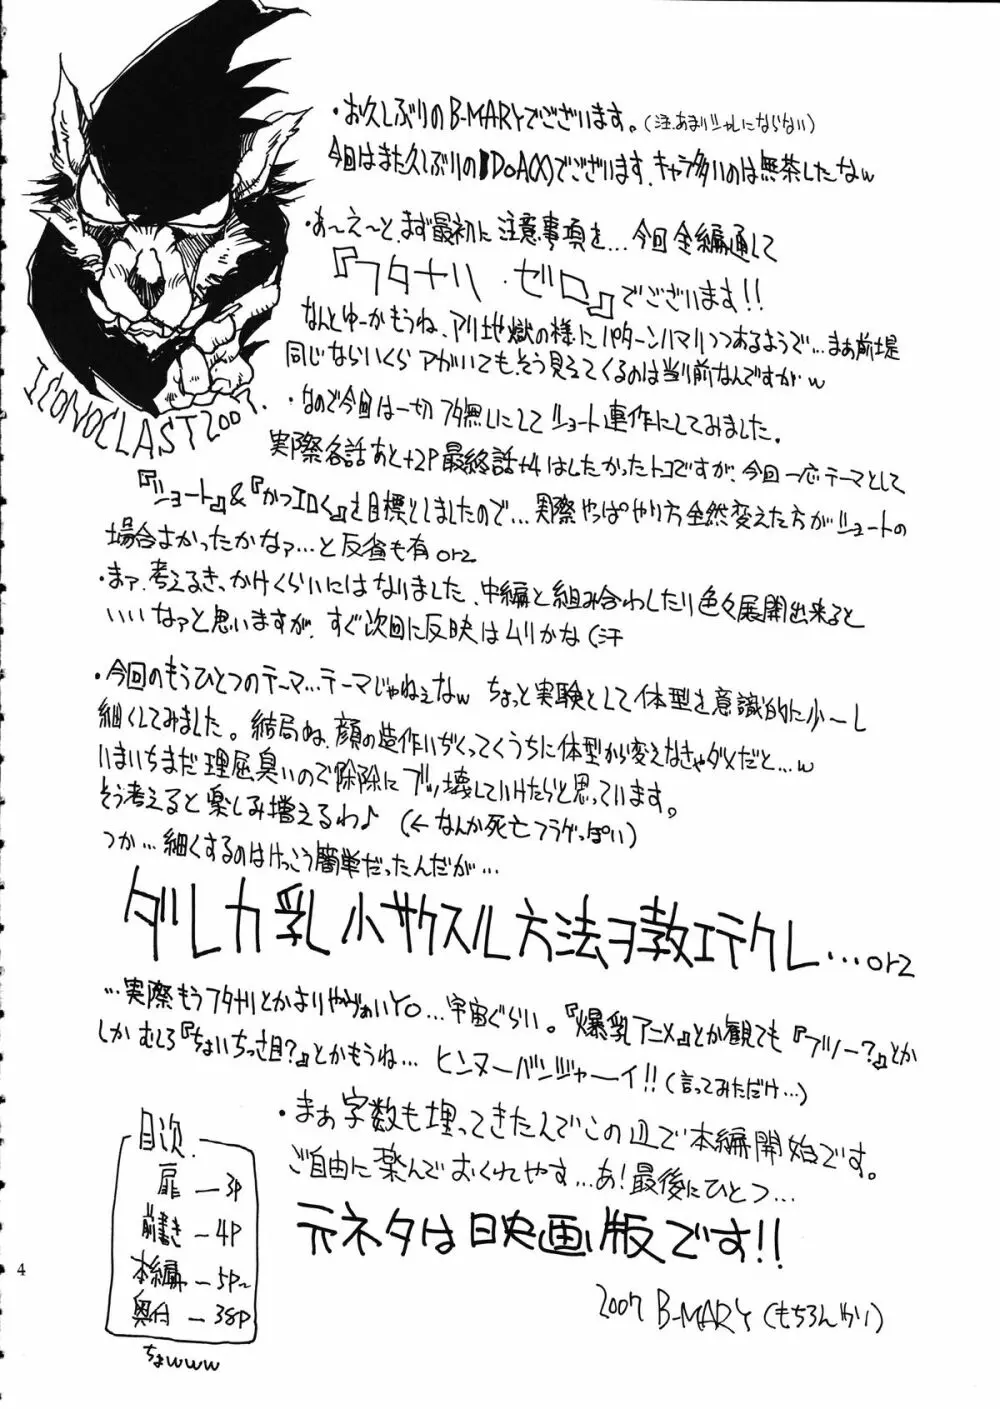 ・お久しぶりのB-MARYでございます。(注.あまりシャレにならない)
今回はまた久しぶりのDoA(X)でございます、キャラ多いのは無茶したなw
・あ〜え〜と、まず最初に注意事項を…今回全編通して
『フタナリ・ゼロ』でございます!!
なんとゆーかもうね、アリ地獄の様にパターンハマリつつあるようで…まあ前提
同じならいくらアがいても、そう見えてくるのは当り前なんですがw
・なので今回は一切フタ無しにしてショート連作にしてみました。
実際各話あと+2P最終話+4はしたかったトコですが、今回一応テーマとして
『ショート』&『かつエロく』を目標としましたので…実際やっぱやり方全然変えた方がショートの
場合よかったかなァ…と反省も有orz
・まァ、考えるきっかけくらいにはなりました、中編と組み合わしたり色々展開出来ると
いいなァと思いますが、すぐ次回に反映はムリかな(汗
・今回のもうひとつのテーマ…テーマじゃねぇなw ちょっと実験として体型を意識的に少〜し
細くしてみました。結局ね、顔の造作いぢくってくうちに体型から変えなきゃダメだと…w
いまいちまだ理屈臭いので除除にブッ壊していけたらと思っています。
そう考えると楽しみ増えるわ♪ (←なんか死亡フラグっぽい)
つか…細くするのはけっこう簡単だったんだが…
ダレカ乳小サクスル方法ヲ教エテクレ…orz
…実際もうフタナリとかよりヤヴァいYO…宇宙ぐらい。『爆乳アニメ』とか観ても『フツー?』とか
しかむしろ『ちょいちっさ目?』とかもうね… ヒンヌーバンジャーイ!!(言ってみただけ…)
・まぁ字数も埋ってきたんでこの辺で本編開始です。
ご自由に楽んでおくれやす…あ!最後にひとつ…
元ネタは映画版です!!
2007 B-MARY(もちろんかり)
ICONOCLAST2007.
目次
扉—3P
前書き—4P
本編—5P〜
奥付—38P
ちょwww
4